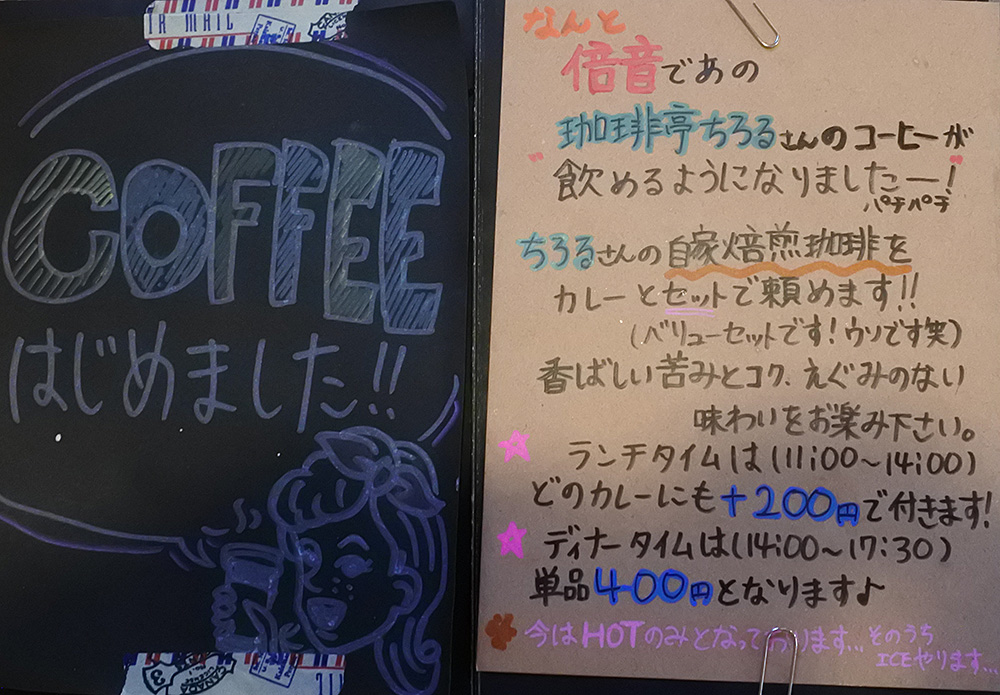 IR MAIL
COFFEE
はじめました!!
なんと
倍音であの
珈琲亭ちろるさんのコーヒーが
飲めるようになりましたー!
パチパチ
ちろるさんの自家焙煎珈琲を
カレーとセットで頼めます!!
(バリューセットです!ウソです笑)
香ばしい苦みとコク、えぐみのない
味わいをお楽み下さい。
ランチタイムは(11:00〜14:00)
どのカレーにも+200円で付きます!
ディナータイムは(14:00〜17:30)
単品400円となります♪
今はHOTのみとなっております...そのうち
ICEやります...